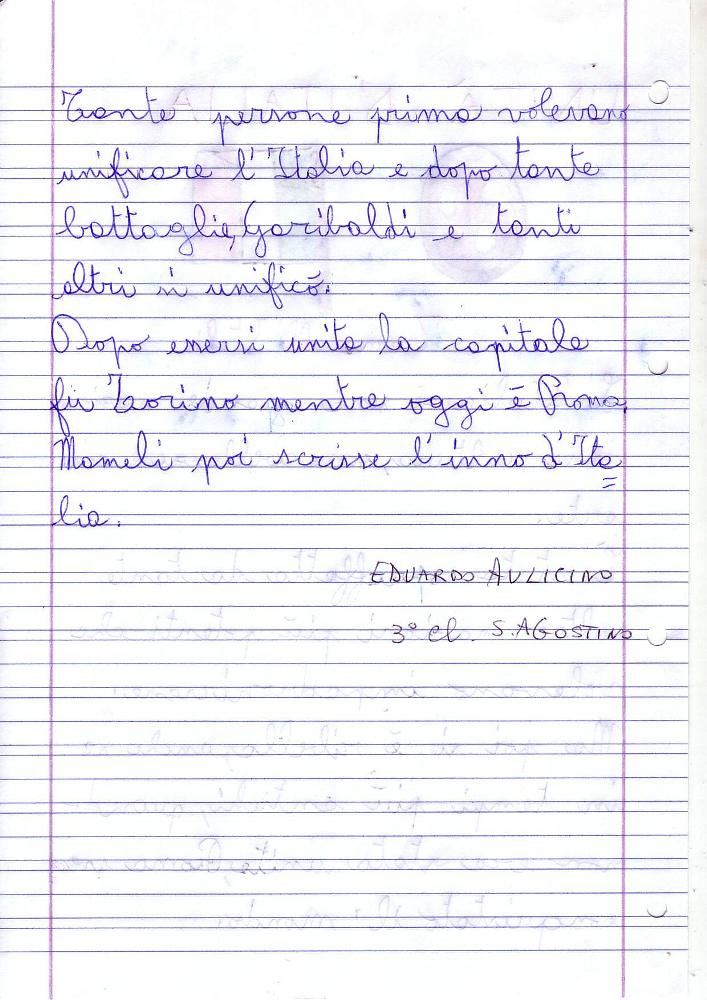 Tante persone prima volevano
unificare l'Italia e dopo tante
battaglie, Garibaldi e tanti
altri si unificò.
Dopo essersi unita la capitale
fu Torino mentre oggi è Roma.
Mameli poi scrisse l'inno d'Ita
lia.
EDUARDO AULICINO
3° cl. S. AGOSTINO